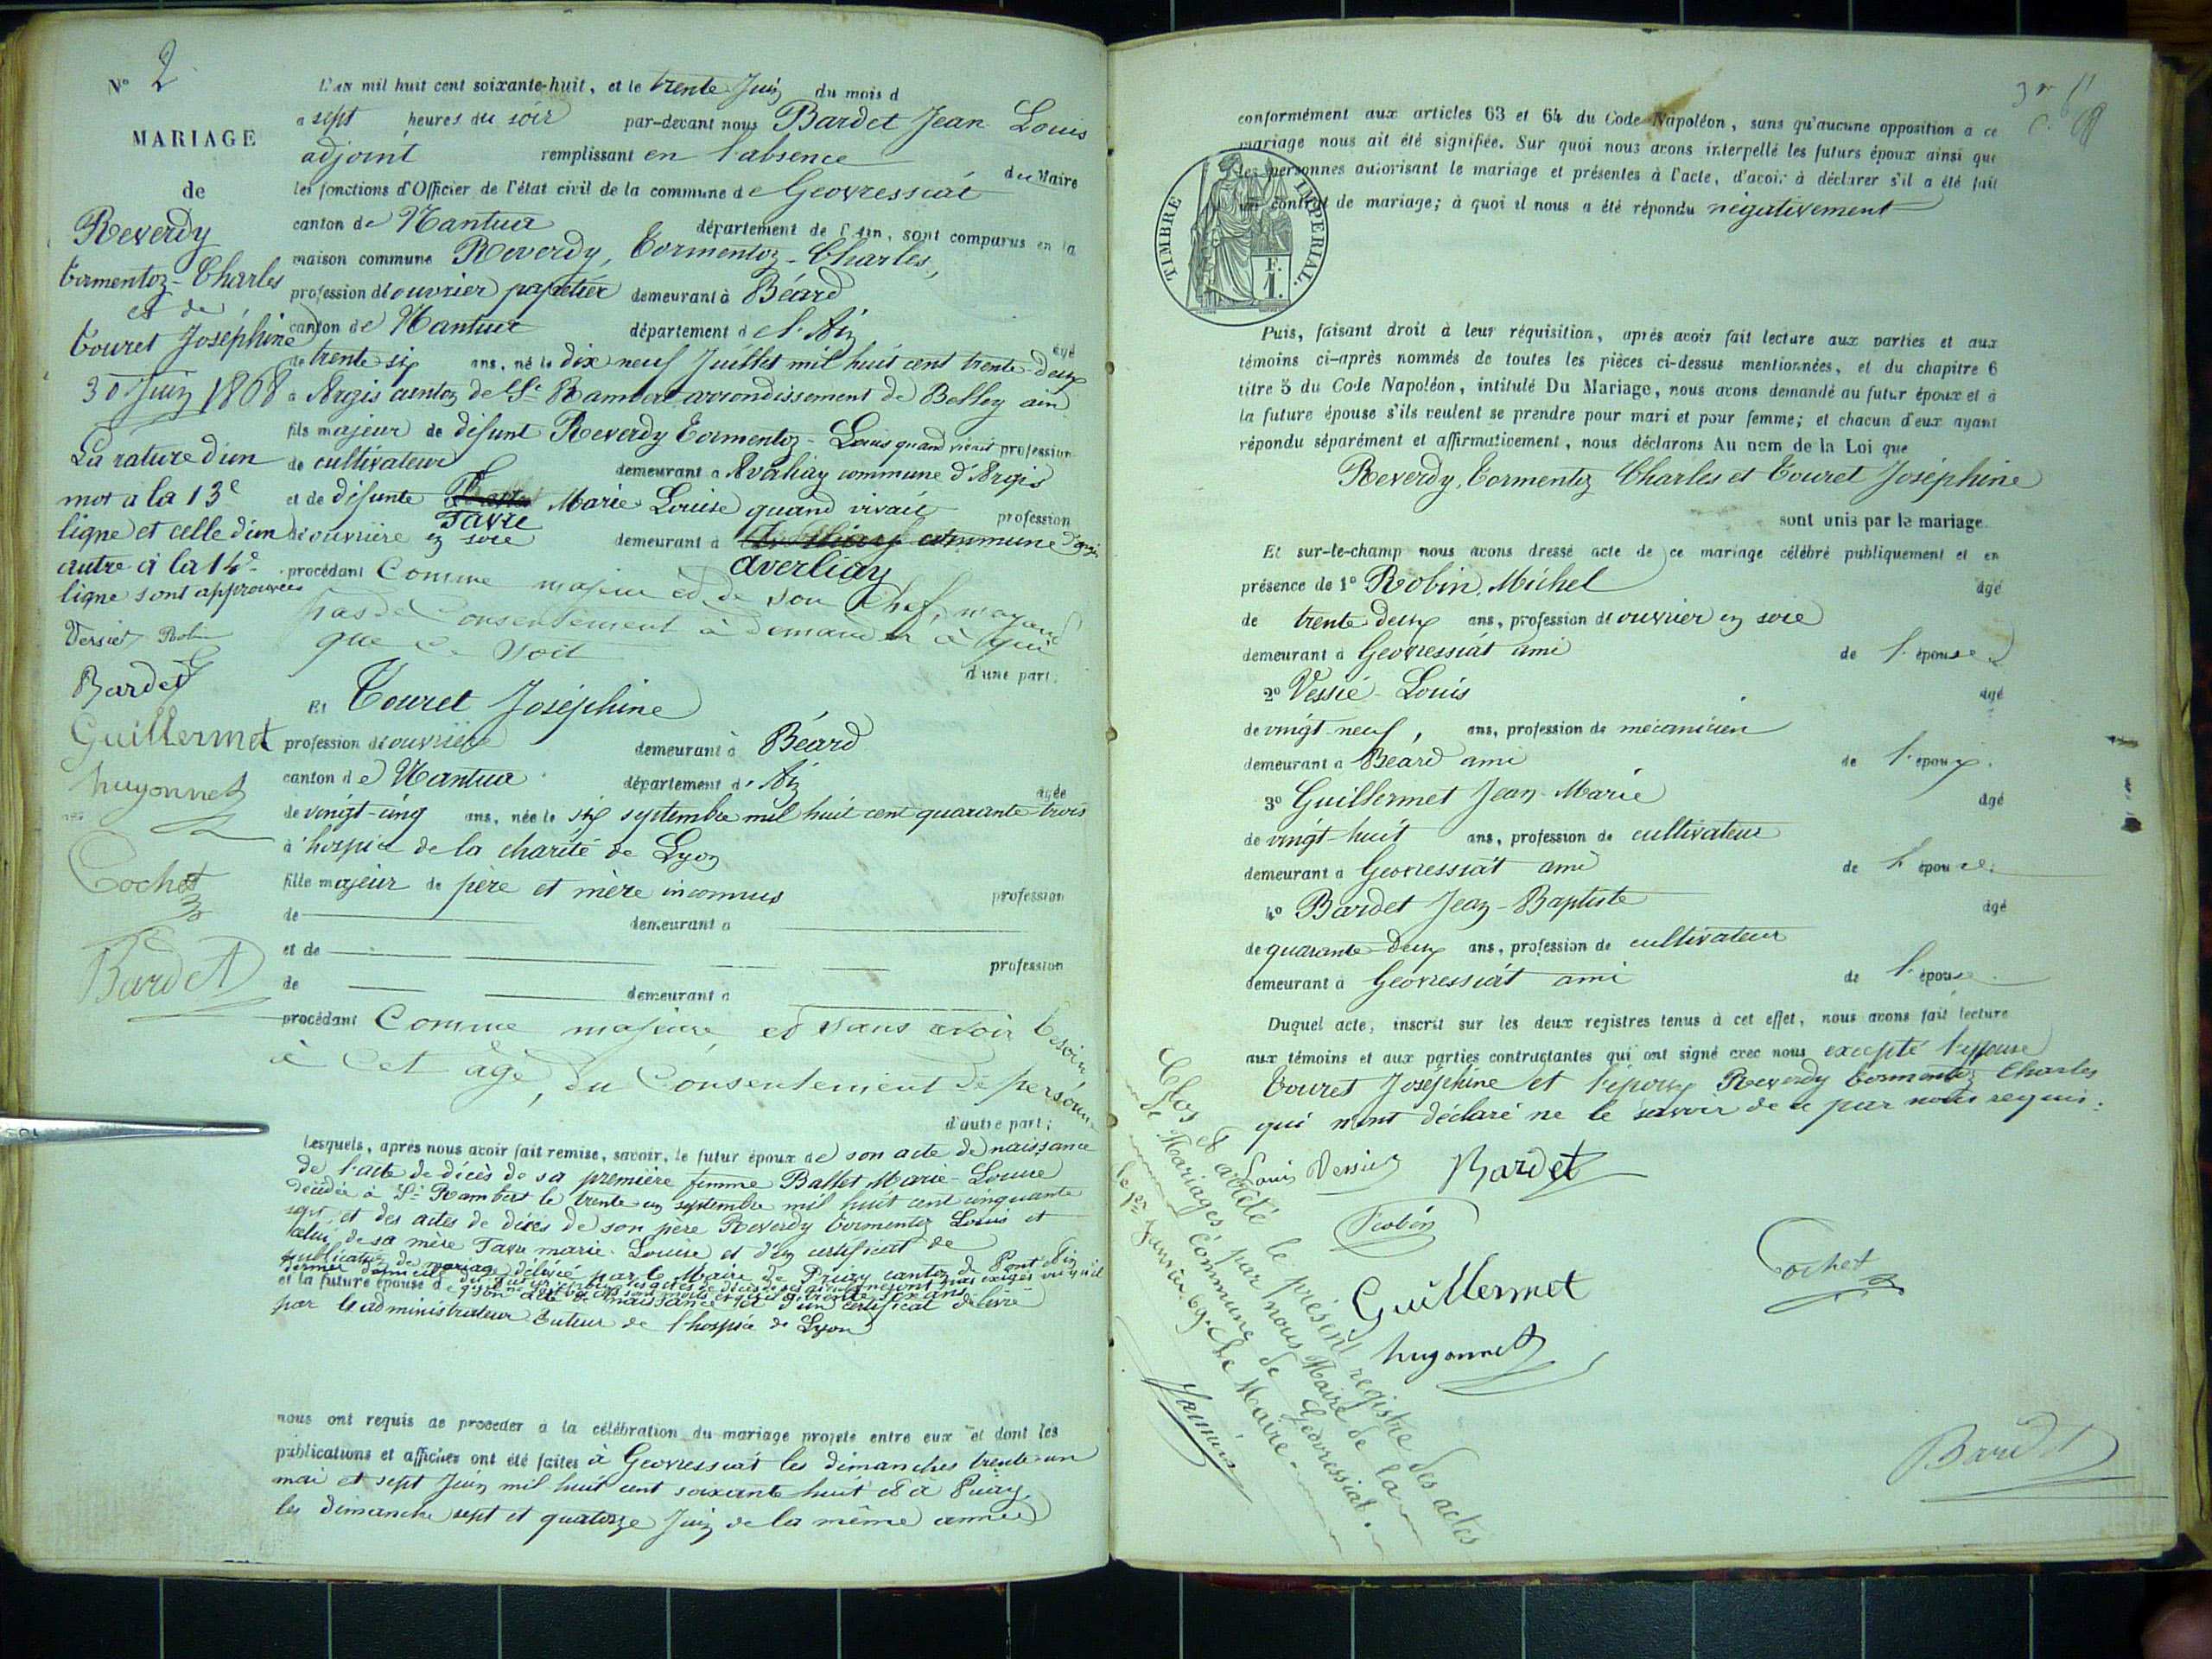 N° 2
MARIAGE
de
Reverdy
Tormentoz-Charles
et de
Touret Joséphine
30 Juin 1868
La rature d'un
mot a la 13e
ligne et celle d'un
autre à la 14e
ligne sont approuvées
Robin
Bardet
Guillermet
huyonnet
Cochet
Bardet
L'an mil huit cent soixante-huit, et le trente Juin du mois d
a sept heures du soir par-devant nous Bardet Jean Louis
adjoint remplissant en l'absence du Maire
les fonctions d'Officier de l'état civil de la commune de Geovressiat
canton de Nantua département de l'Ain, sont comparus en la
maison commune Reverdy, Tormentoz-Charles,
profession d'ouvrier papetier demeurant à Béard
canton de Nantua département de l'Ain âgé
de trente six ans, né le dix neuf Juillet mil huit cent trente-deux
a Argis canton de St Rambert arrondissement de Belley ain
fils majeur de défunt Reverdy Tormentoz-Louis quand vivait profession
de cultivateur demeurant a Avaliay commune d'Argis
et de défunte Marie Louise quand vivait profession
Tavre
d'ouvrière en soie demeurant à commune d'Argis
averliay
procédant Comme majeur et de son chef, n'ayant
pas de Consentement à demander à qui
que ce soit
d'une part;
Et Touret Joséphine
profession d'ouvrière demeurant à Béard
canton de Nantua département d'Ain âgée
de vingt-cinq ans, née le six septembre mil huit cent quarante trois
à hospice de la charité de Lyon
fille majeur de père et mère inconnus profession
de demeurant a
et de profession
de demeurant a
procédant Comme majeure, et sans avoir besoin,
à Cet âge, du Consentement de personne
d'autre part;
Lesquels, après nous avoir fait remise, savoir, le futur époux de son acte de naissance
de l'acte de décès de sa première femme Ballet Marie-Louise
décédée à St Rambert le trente un septembre mil huit cent cinquante
sept, et des actes de décès de son père Reverdy Tormentoz Louis et
celui de sa mère Tavre marie-Louise et d'un certificat de
publication de mariage délivré par le Maire de Priay canton de Pont d'Ain
et la future épouse de son acte de naissance et d'un certificat délivré
par le administrateur tuteur de l'hospice de Lyon
nous ont requis de procéder à la célébration du mariage projeté entre eux et dont les
publications et affiches ont été faites à Geovressiat les dimanches trente-un
mai et sept Juin mil huit cent soixante huit et à Priay
les dimanche sept et quatorze Juin de la même année
conformément aux articles 63 et 64 du Code Napoléon, sans qu'aucune opposition a ce
mariage nous ait été signifiée. Sur quoi nous avons interpellé les futurs époux ainsi que
les personnes autorisant le mariage et présentes à l'acte, d'avoir à déclarer s'il a été fait
un contrat de mariage; à quoi il nous a été répondu négativement
TIMBRE IMPÉRIAL.
F. 1.
Puis, faisant droit à leur réquisition, après avoir fait lecture aux parties et aux
témoins ci-après nommés de toutes les pièces ci-dessus mentionnées, et du chapitre 6
titre 5 du Code Napoléon, intitulé Du Mariage, nous avons demandé au futur époux et à
la future épouse s'ils veulent se prendre pour mari et pour femme; et chacun d'eux ayant
répondu séparément et affirmativement, nous déclarons Au nom de la Loi que
Reverdy, Tormentoz Charles et Touret Joséphine
sont unis par le mariage.
Et sur-le-champ nous avons dressé acte de ce mariage célébré publiquement et en
présence de 1° Robin, Michel âgé
de trente deux ans, profession d'ouvrier en soie
demeurant à Geovressiat ami de l'épouse
2° Vessié-Louis âgé
de vingt-neuf, ans, profession de mécanicien
demeurant a Béard ami de l'époux.
3° Guillermet Jean-Marie âgé
de vingt-huit ans, profession de cultivateur
demeurant à Geovressiat ami de l'épouse.
4° Bardet Jean-Baptiste âgé
de quarante-deux ans, profession de cultivateur
demeurant à Geovressiat ami de l'épouse.
Duquel acte, inscrit sur les deux registres tenus à cet effet, nous avons fait lecture
aux témoins et aux parties contractantes qui ont signé avec nous excepté l'épouse
Touret Joséphine et l'époux Reverdy Tormentoz Charles
qui n'ont déclaré ne le savoir de ce par nous requis.
Louis Bardet
Robin
Guillermet
Cochet
huyonnet
Bardet
Clos et arrêté le présent registre des actes
de Mariages par nous Maire de la
Commune de Geovressiat.
le 1er Janvier 69. Le Maire.